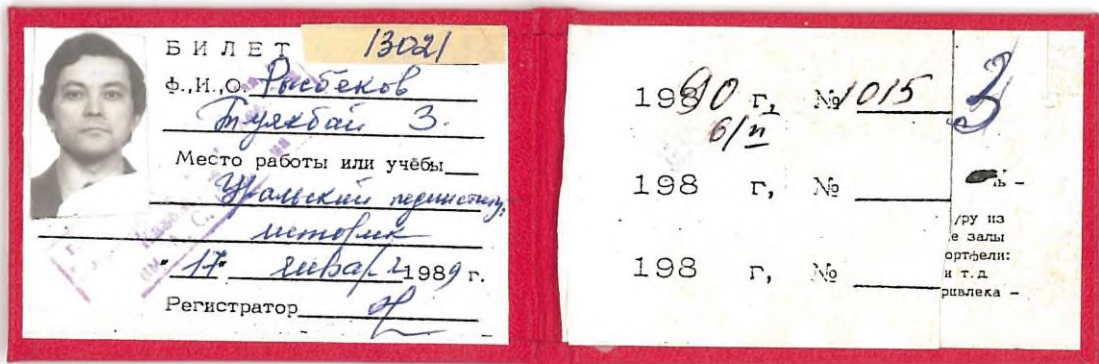 БИЛЕТ 13021
Ф.,И.,О. Рысбеков
Туякбай З.
Место работы или учёбы
Уральский пединститут,
историк
"17" января 1989 г.
Регистратор
1990 г, № 1015 3
б/п
198 г, №
198 г, №
/ру из
е залы
ортфели:
и т.д
ривлека -